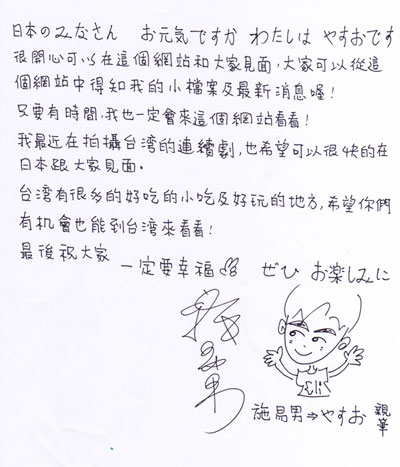 日本のみなさん　お元気ですか　わたしは　やすおです
很開心可以在這個網站和大家見面,大家可以從這
個網站中得知我的小檔案及最新消息喔!
只要有時間,我也一定會來這個網站看看!
我最近在拍攝台湾的連續劇,也希望可以很快的在
日本跟大家見面。
台湾有很多的好吃的小吃及好玩的地方,希望你們
有机會也能到台湾來看看!
最後祝大家
一定要幸福　ぜひ　お楽しみに
施易男⇒やすお　親筆